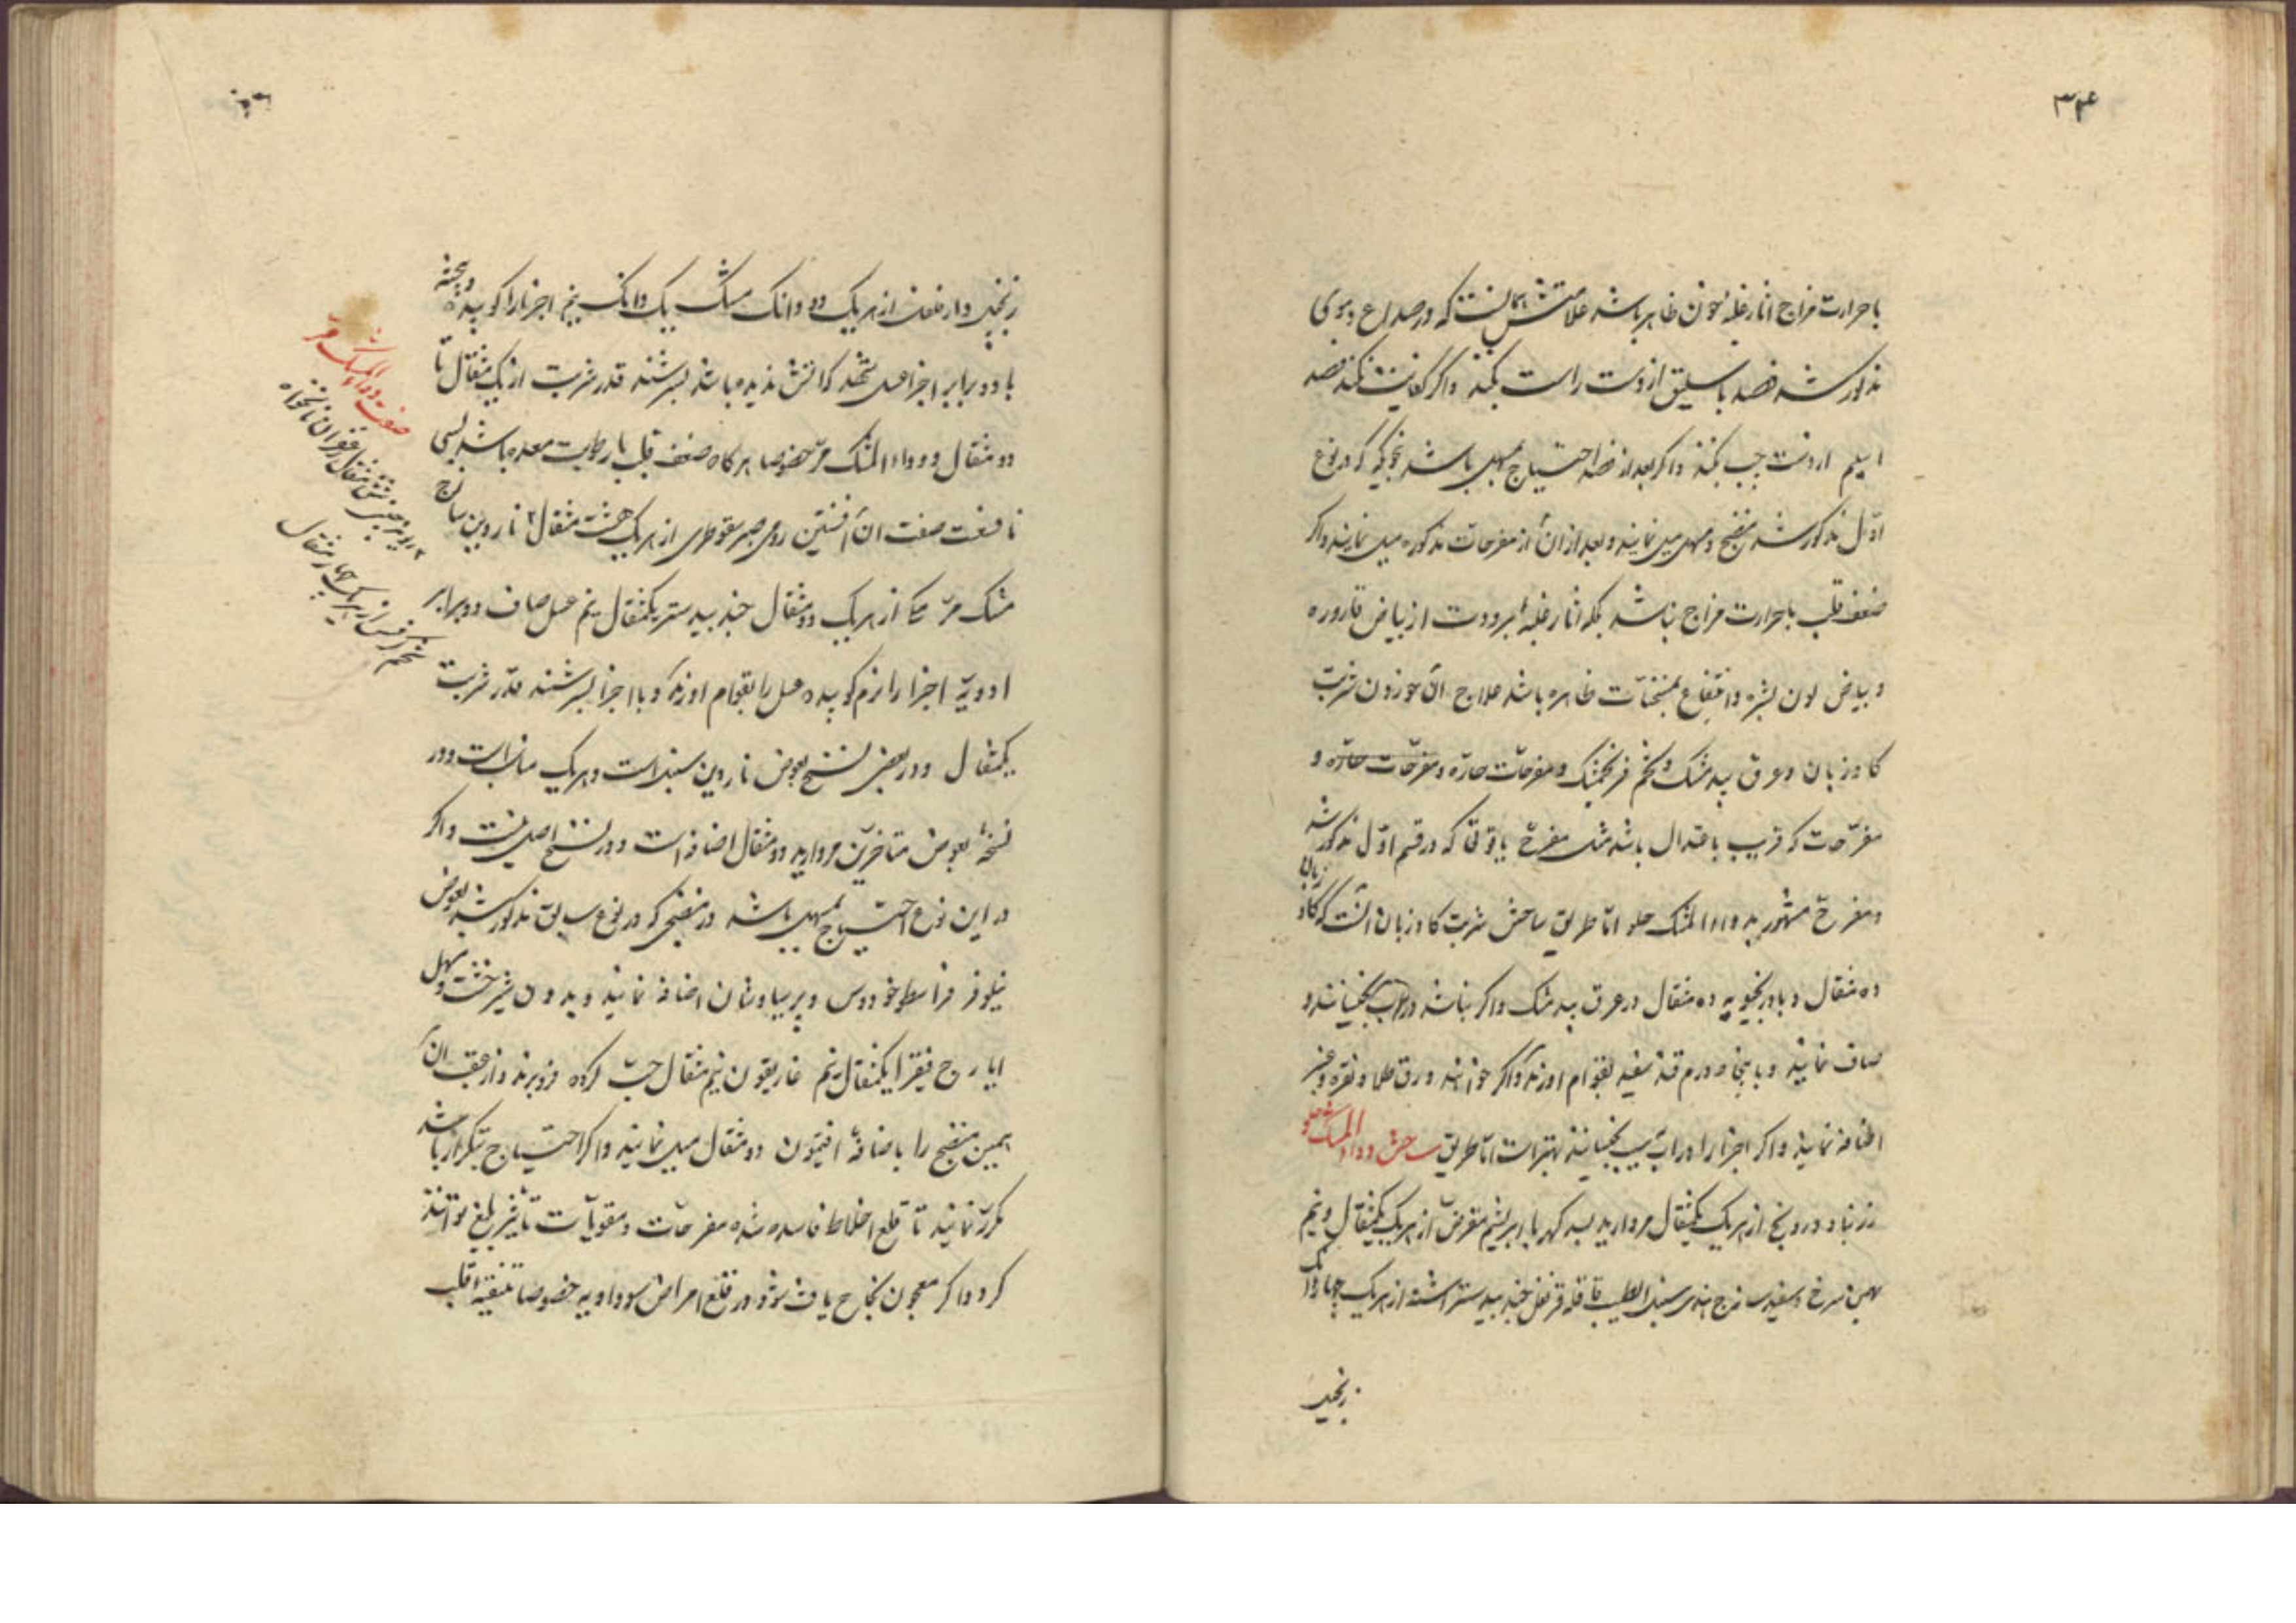 ۳۴
با حرارت مزاج آثار غلبه خون ظاهر باشد علامتش آنست که در صداع دموی
مذکور شد فصد باسلیق از دست راست بکنند و اگر کفایت نکند فصد
اسیلم از دست چپ بکنند و اگر بعد از فصد احتیاج بمسهل باشد بنحوی که در نوع
اوّل مذکور شد منضج و مسهل میل نمایند و بعد از آن از مفرحات مذکوره میل نمایند و اگر
ضعف قلب با حرارت مزاج نباشد بلکه آثار غلبه برودت از بیاض قاروره
و بیاض لون بشره و انتفاع بمسخنات ظاهر باشد علاج آن خوردن شربت
کاوزبان و عرق بیدمشک و تخم فرنجمشک و مفرحات حارّه و مفرّحات حارّه و
مفرّحات که قریب باعتدال باشد مثل مفرح یاقوتی که در قسم اوّل مذکور شد
و مفرح مشهور به دواء المسک حلو امّا طریق ساختن شربت کاوزبان آنست که کاوزبان
ده مثقال و بادرنجبویه ده مثقال در عرق بیدمشک و اگر نباشد در آب بخیسانند و
صاف نمایند و با پنجاه درم قند سفید بقوام آورند و اگر خواهند ورق طلا و نقره و عنبر
اضافه نمایند و اگر اجزا را در آب سیب بخیسانند بهتر است امّا طریق ساختن دواء المسک حلو
زرنباد درونج از هر یک یکمثقال مروارید بسد کهربا ابریشم مقرض از هر یک یکمثقال و نیم
بهمن سرخ و سفید ساذج هندی سنبل الطیب قاقله قرنفل جندبیدستر اشنه از هر یک چهار دانک
زنجبیل
زنجبیل دارفلفل از هر یک دو دانک مشک یک دانک و نیم اجزا را کوبیده و بیخته
با دو برابر اجزا عسل که آتش ندیده باشد بسرشند قدر شربت از یک مثقال تا
دو مثقال و دواء المسک مرّ خصوصا هرگاه ضعف قلب با رطوبت معده باشد بسی
نافعست صفت آن افسنتین رومی صبر سقوطری از هر یک هشت مثقال ناردین ساذج
مشک مرّ مکی از هر یک دو مثقال جندبیدستر یکمثقال نیم عسل صاف دو برابر
ادویّه اجزا را نرم کوبیده عسل را بقوام آورند و با اجزا بسرشند قدر شربت
یکمثقال و در بعضی نسخ بعوض ناردین سنبل است و هر یک مناسب است و در
نسخهٔ بعوض متأخرین مروارید دو مثقال اضافه است و در نسخ اصلی نیست و اگر
در این نوع احتیاج بمسهل باشد در منضجی که در نوع سابق مذکور شد بعوض
نیلوفر اسطوخودوس و پرسیاوشان اضافه نمایند و بدون شیرخشت و مسهل
ایارج فیقرا یکمثقال نیم غاریقون نیم مثقال حبّ کرده فرو برند و از عقب آن
همین منضج را باضافهٔ افتیمون دو مثقال میل نمایند و اگر احتیاج بتکرار باشد
مکرّر نمایند تا قلع اخلاط فاسده شده مفرحات و مقویّات تأثیر بلیغ توانند
کرد و اگر معجون نجاح یافت شود در قلع امراض سوداویه خصوصا تنقیهٔ قلب
صفت دواء المسک مرّ
ریوند چینی شش مثقال زعفران نانخواه
تخم کرفس از هر یک چهار مثقال